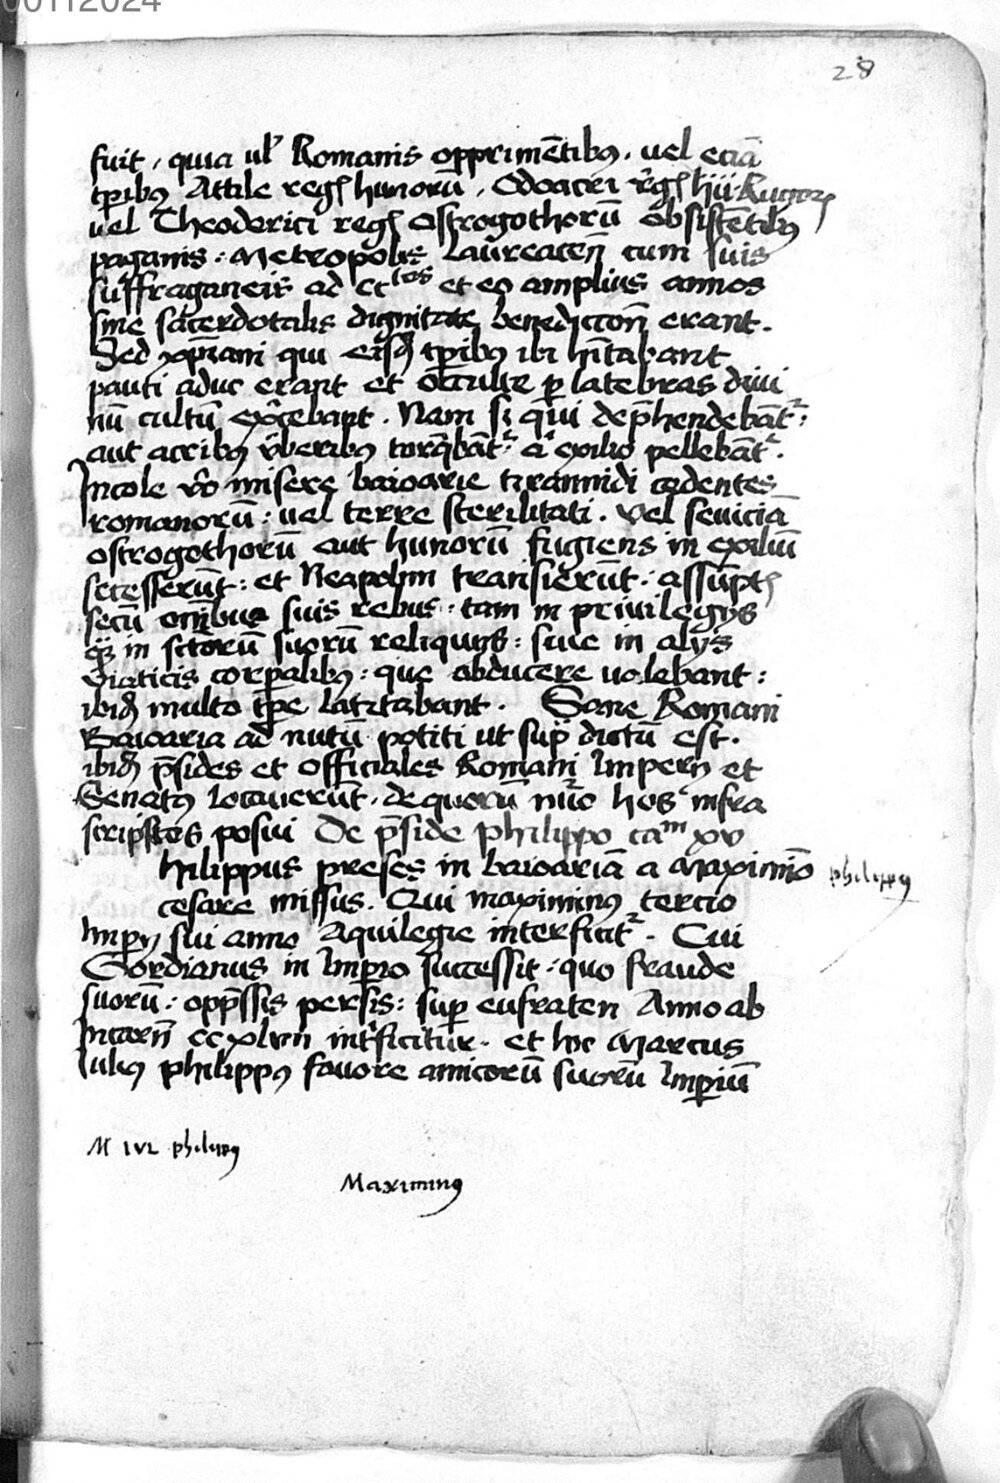 00112024
28
fuit, quia ul' Romanis opprimētibꝯ. uel eciā
tꝑibꝯ Attile regꝭ hunorū, Odoacri r̄gꝭ
uel Theoderici regꝭ Ostrogothorū obsistētibꝯ
paganis : Metropolis Laureaceñ cum suis
suffraganeis ad cc^tos et eo amplius annos
sine sac̄erdotalis dignitate benedictōn̄ erant.
Sed xp̄iani qui eisdē tꝑibꝯ ibi hītabant
pauci aduc erant et occulte ꝑ latebras diui
nū cultū exc̄ebant. Nam si qui dep̄hendebāt^r :
aut acribꝯ v̄beribꝯ torq̄bāt^r : a^t exilio pellebāt^r.
Incole v̄o misere baioarie tirannidi cedentes
romanorū : uel terre sterilitati. vel seuiciā
ostrogothorū aut hunorū fugiens in exiliū
secesserūt : et Neapolim transierūt : assūptꝭ
secū omībus suis rebus : tam in priuilegijs
qꝫ in sc̄torū suorū reliquijs : siue in alijs
viaticis corꝑalibꝯ : que abducere uolebant :
ibidē multo tꝑe latitabant. Sane Romani
Baioaria ad nutū potiti ut suꝑ dictū est.
ibidē p̄sides et officiales Romani Imperij et
Senatꝯ locauerūt. de quorū nūo hos infra
scriptos posui De p̄side philippo ca^m xv
hilippus preses in baioariā a Maximīo
philippꝯ
cesare missus. Qui maximinꝯ tercio
Imꝑij sui anno Aquilegie interficit^r. Cui
Gordianus in Imꝑio successit : quo fraude
suorū : opp̄ssis persis : suꝑ eufraten Anno ab
Incarn̄ ccxlvij int̄ficitur. et hic Marcus
Iuliꝯ philippꝯ fauore amicorū suorū Imꝑiū
M IVL philippꝯ
Maximinꝯ